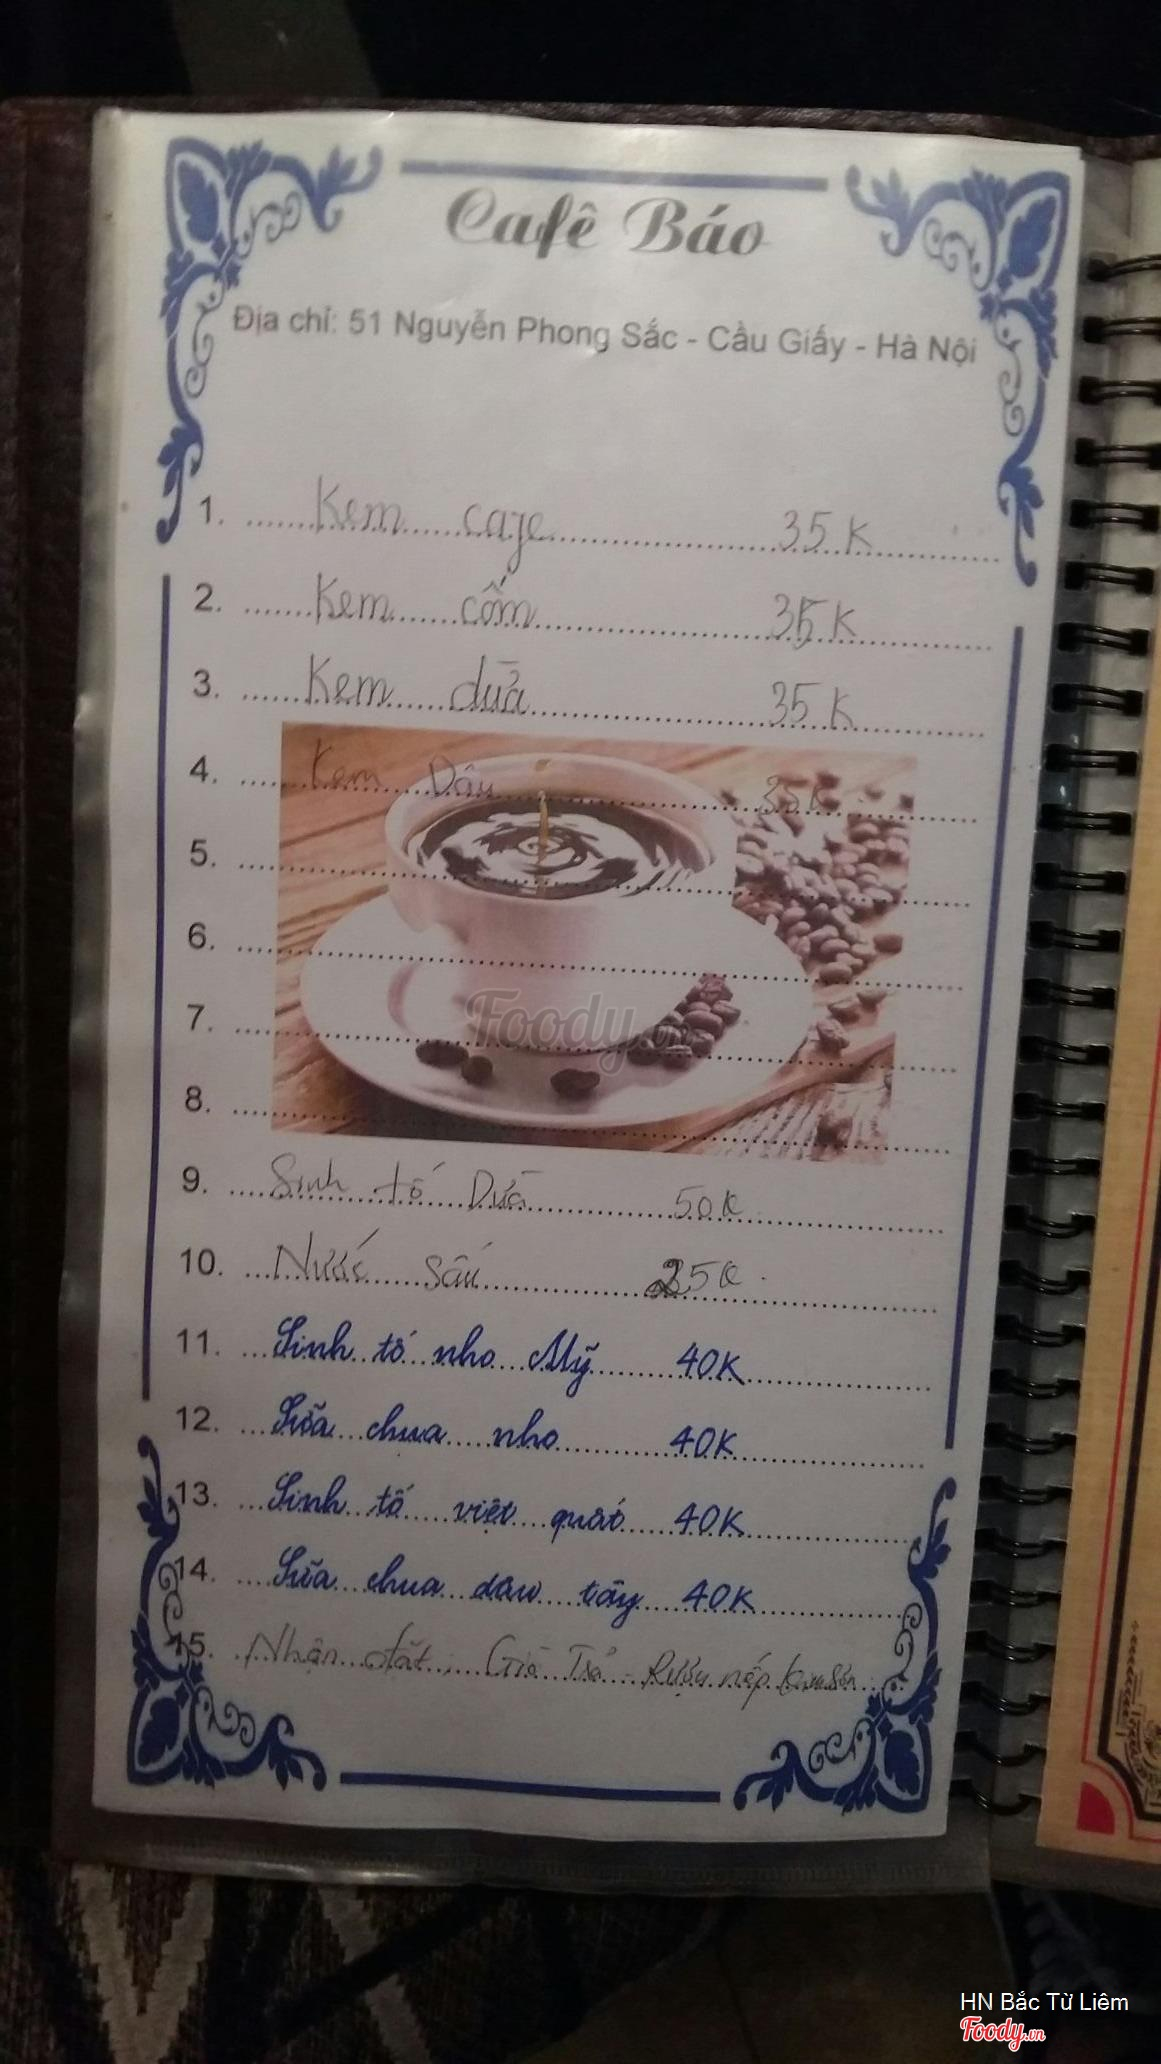 Cafê Báo
Địa chỉ: 51 Nguyễn Phong Sắc - Cầu Giấy - Hà Nội
1. Kem cafe 35K
2. Kem cốm 35K
3. Kem dừa 35K
4. Kem Dâu 35K
5.
6.
7.
8.
Foody.vn
9. Sinh tố Dừa 50K
10. Nước sấu 25K
11. Sinh tố nho Mỹ 40K
12. Sữa chua nho 40K
13. Sinh tố việt quất 40K
14. Sữa chua dâu tây 40K
15. Nhận đặt: Giò Trả - Rượu nếp
HN Bắc Từ Liêm
Foody.vn